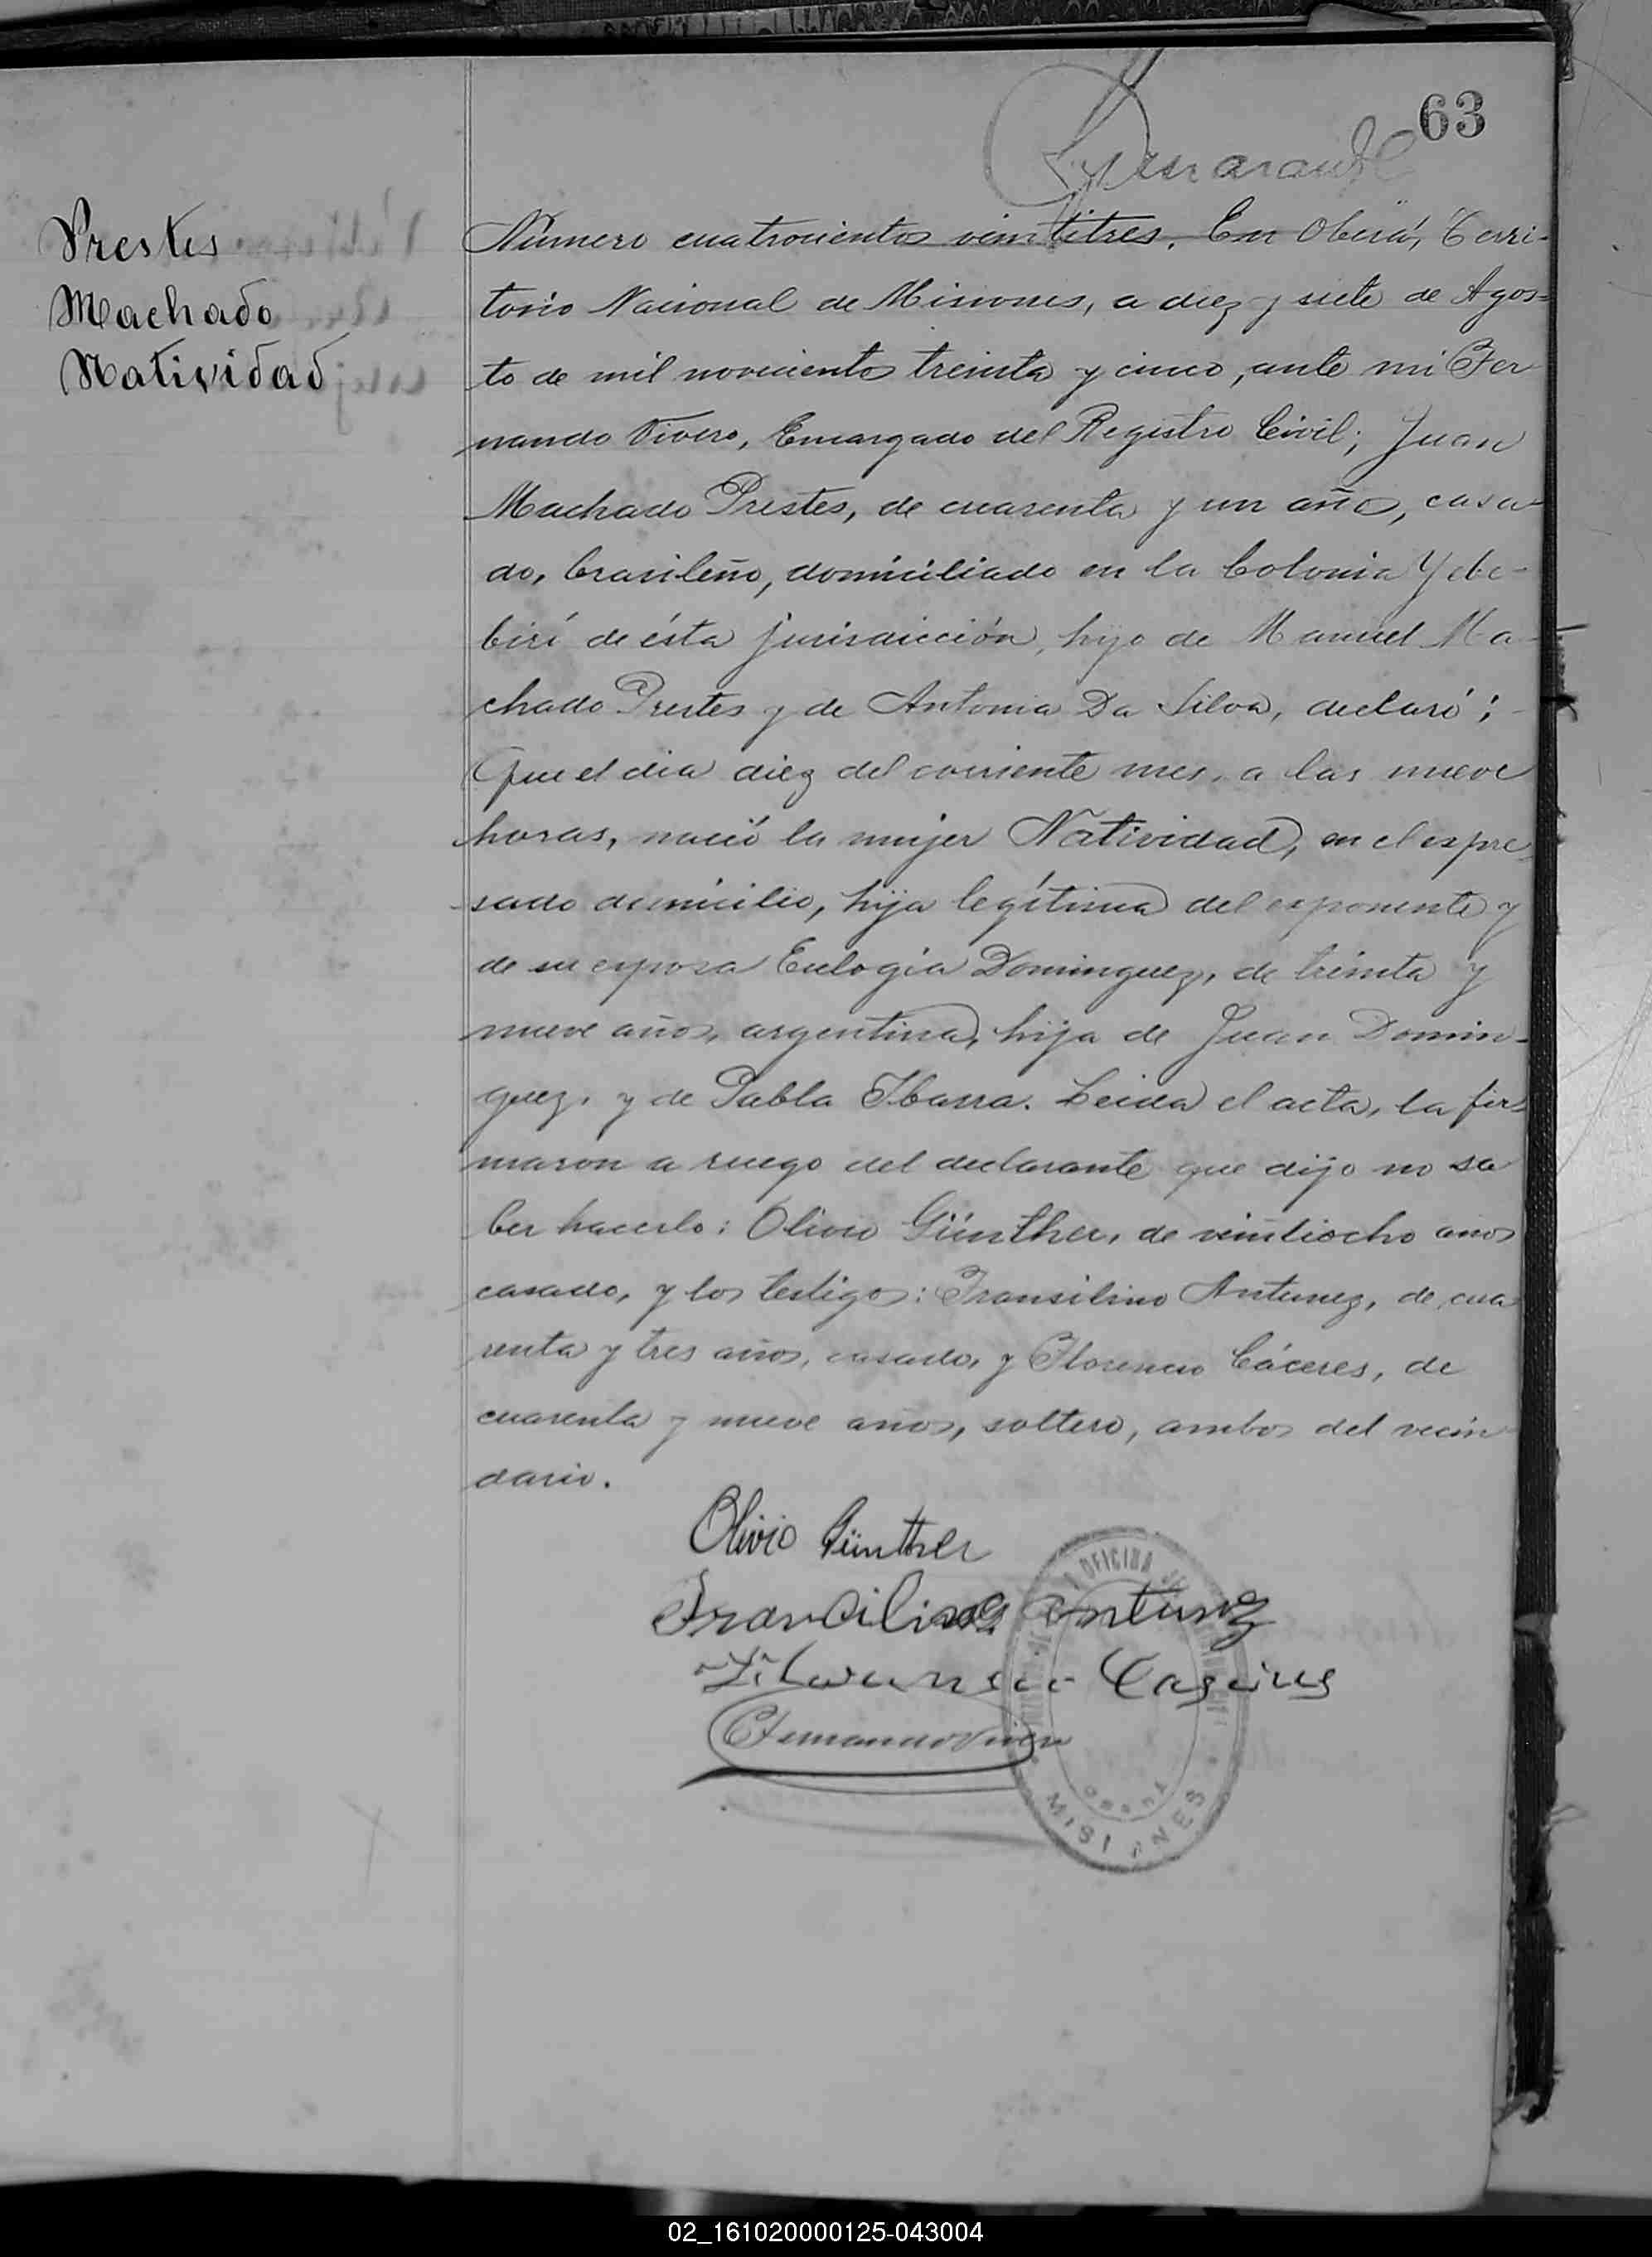 63
Prestes
Machado
Natividad
Número cuatrocientos veintitres. En Oberá, Terri-
torio Nacional de Misiones, a diez y siete de Agos-
to de mil novecientos treinta y cinco, ante mi Fer
nando Vivero, Encargado del Registro Civil; Juan
Machado Prestes, de cuarenta y un años, casa-
do, brasileño, domiciliado en la Colonia Yebe-
birí de ésta jurisdicción, hijo de Manuel Ma-
chado Prestes y de Antonia Da Silva, declaró:
Que el dia diez del corriente mes, a las nueve
horas, nació la mujer Natividad, en el expre-
sado domicilio, hija legítima del exponente y
de su esposa Eulogia Dominguez, de treinta y
nueve años, argentina, hija de Juan Domin-
guez, y de Pabla Ibarra. Leida el acta, la fir-
maron a ruego del declarante que dijo no sa
ber hacerlo: Olivio Günther, de veintiocho años
casado, y los testigos: Transilino Antunez, de cua
renta y tres años, casado, y Florencio Cáceres, de
cuarenta y nueve años, soltero, ambos del vecin
dario.
Olivio Günther
Antunez
Fernando Vivero
OFICINA
MISIONES
02_161020000125-043004